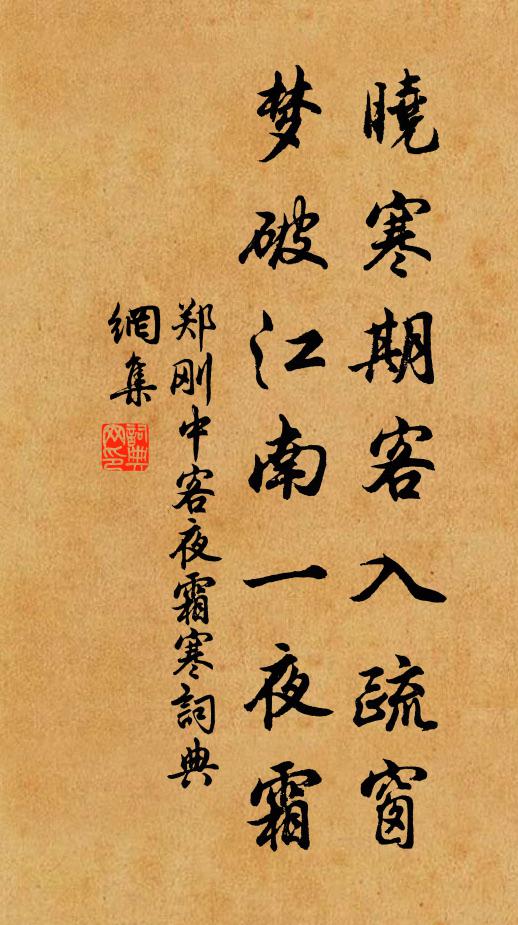 曉寒期客入疏窗
梦破江南一夜霜
郑刚中客夜霜寒詞典
網集
詞典網印